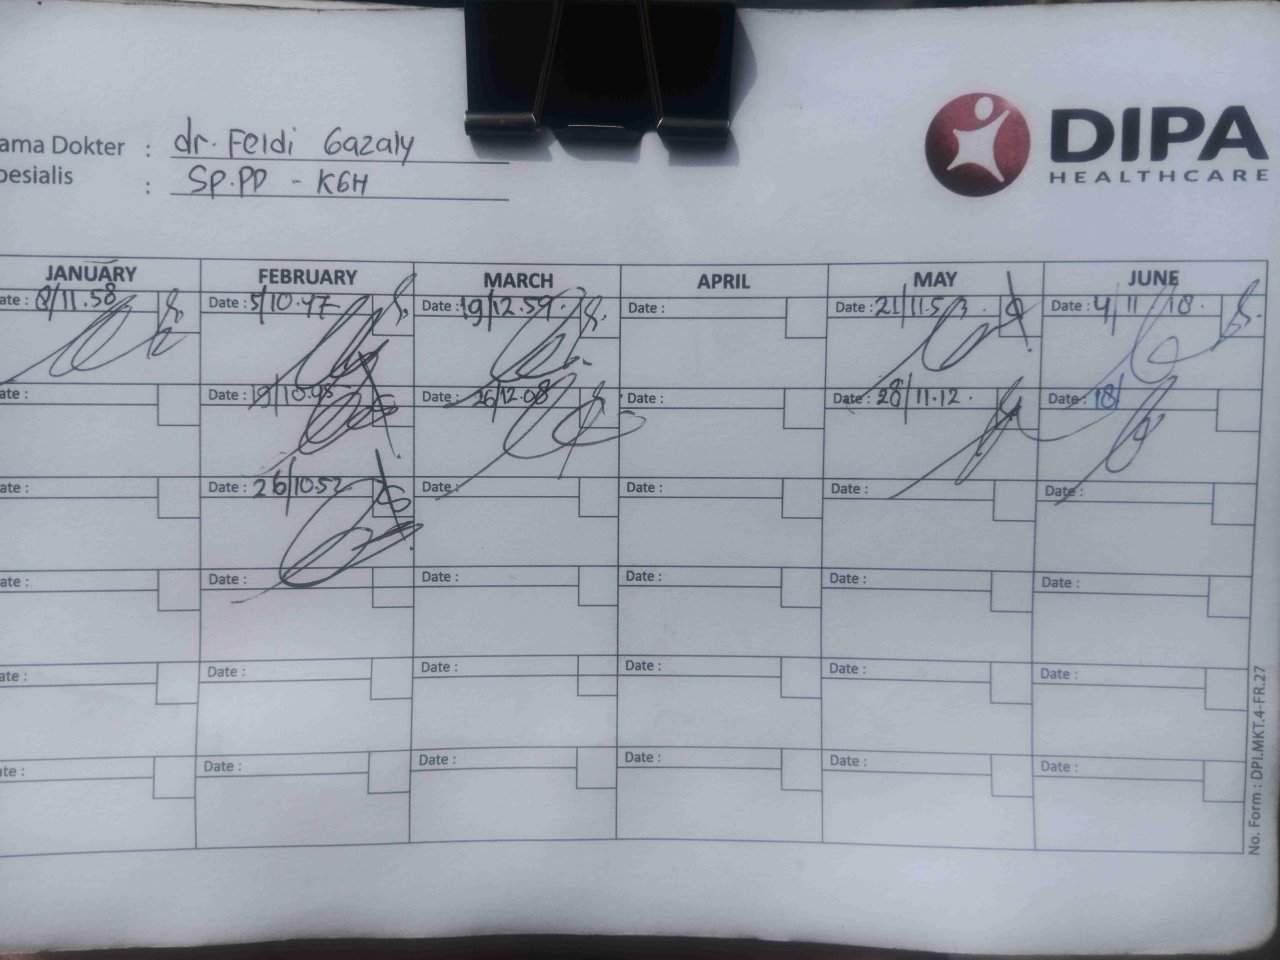 ama Dokter : dr. Feldi Gazaly
pesialis : SP.PD - KGH
DIPA
HEALTHCARE
JANUARY FEBRUARY MARCH APRIL MAY JUNE
ate : 8/11.58 Date : 5/10.47 Date : 19/12.59. Date : Date : 21/11.53. Date : 4/11 18.
ate : Date : 19/10.48 Date : 26/12.08 Date : Date : 28/11.12. Date : 18/
ate : Date : 26/10.52 Date : Date : Date : Date :
ate : Date : Date : Date : Date : Date :
ate : Date : Date : Date : Date : Date :
ate : Date : Date : Date : Date : Date :
No. Form : DPI.MKT.4-FR.27